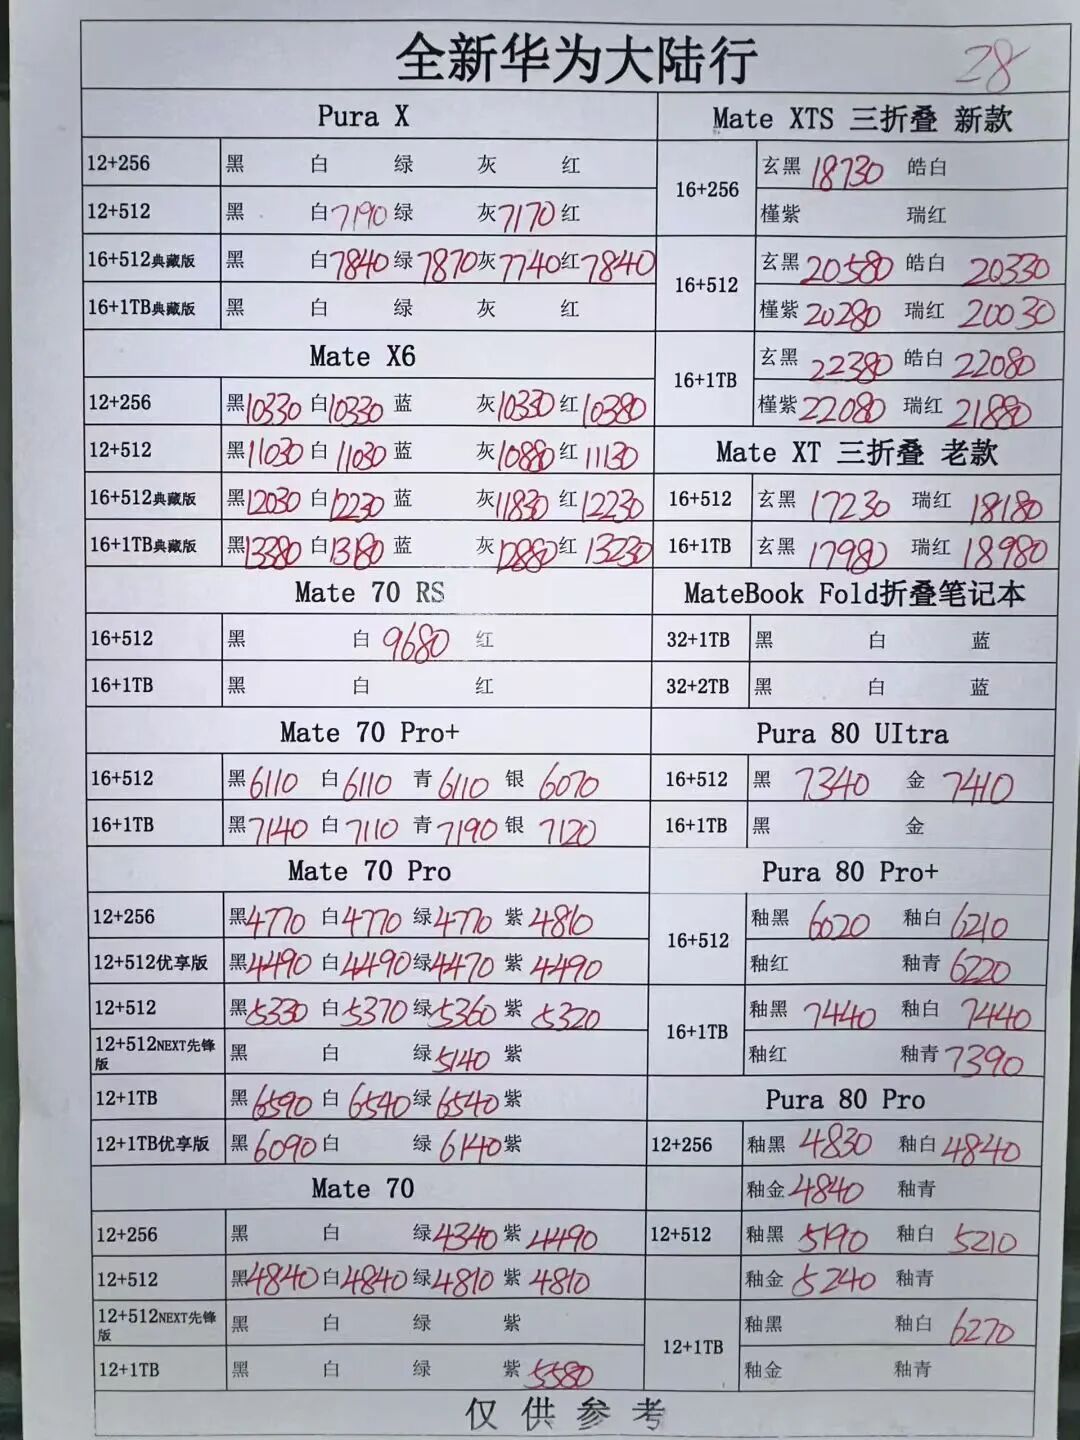 全新华为大陆行 28
Pura X
12+256 黑 白 绿 灰 红
12+512 黑 白7190 绿 灰7170 红
16+512典藏版 黑 白7840 绿7870 灰7740 红7840
16+1TB典藏版 黑 白 绿 灰 红
Mate X6
12+256 黑10330 白10330 蓝 灰10330 红10380
12+512 黑11030 白11030 蓝 灰10880 红11130
16+512典藏版 黑12030 白12230 蓝 灰11830 红12230
16+1TB典藏版 黑13380 白13180 蓝 灰12880 红13230
Mate 70 RS
16+512 黑 白 9680 红
16+1TB 黑 白 红
Mate 70 Pro+
16+512 黑6110 白6110 青6110 银6070
16+1TB 黑7140 白7110 青7190 银7120
Mate 70 Pro
12+256 黑4770 白4770 绿4770 紫4810
12+512优享版 黑4490 白4490 绿4470 紫4490
12+512 黑5330 白5370 绿5360 紫5320
12+512NEXT先锋
版 黑 白 绿5140 紫
12+1TB 黑6590 白6540 绿6540 紫
12+1TB优享版 黑6090 白 绿6140 紫
Mate 70
12+256 黑 白 绿4340 紫4490
12+512 黑4840 白4840 绿4810 紫4810
12+512NEXT先锋
版 黑 白 绿 紫
12+1TB 黑 白 绿 紫5580
Mate XTS 三折叠 新款
16+256 玄黑 18730 皓白
槿紫 瑞红
16+512 玄黑 20580 皓白 20330
槿紫 20280 瑞红 20030
16+1TB 玄黑 22380 皓白 22080
槿紫 22080 瑞红 21880
Mate XT 三折叠 老款
16+512 玄黑 17230 瑞红 18180
16+1TB 玄黑 17980 瑞红 18980
MateBook Fold折叠笔记本
32+1TB 黑 白 蓝
32+2TB 黑 白 蓝
Pura 80 UItra
16+512 黑 7340 金 7410
16+1TB 黑 金
Pura 80 Pro+
16+512 釉黑 6020 釉白 6210
釉红 釉青 6220
16+1TB 釉黑 7440 釉白 7440
釉红 釉青 7390
Pura 80 Pro
12+256 釉黑 4830 釉白 4840
釉金 4840 釉青
12+512 釉黑 5190 釉白 5210
釉金 5240 釉青
12+1TB 釉黑 釉白 6270
釉金 釉青
仅供参考